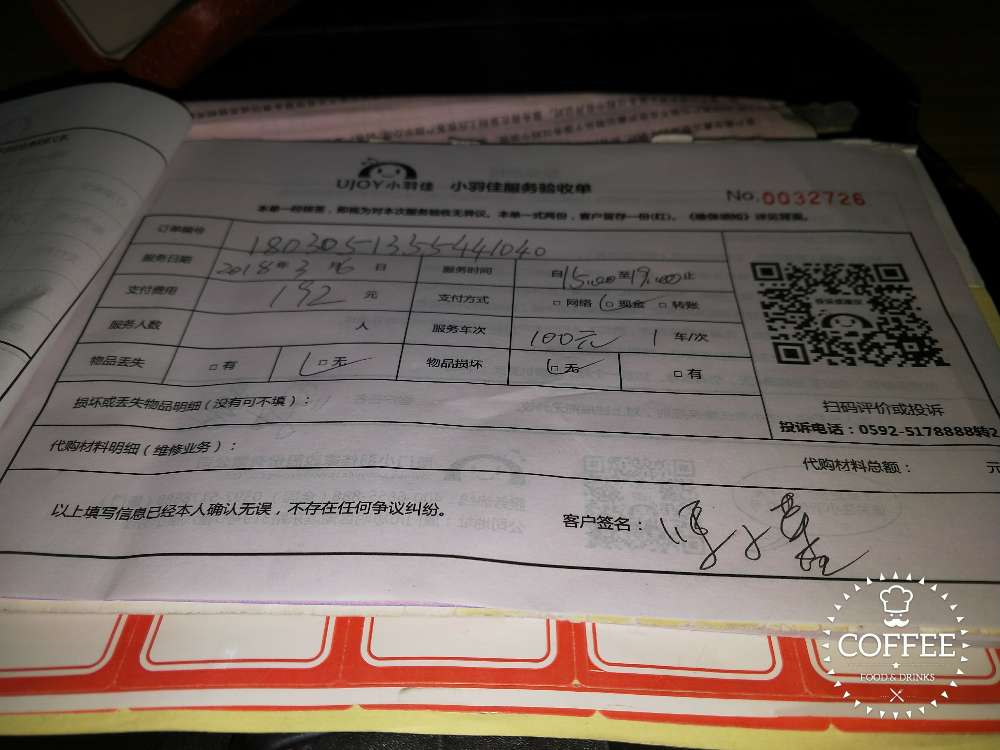 UJOY小羽佳 小羽佳服务验收单
No.0032726
本单一经签署，即视为对本次服务验收无异议。本单一式两份，客户留存一份(红)。
订单编号 180305135541040
服务日期 2018年3月6日 服务时间 自15:00至19:00止
支付费用 192元 支付方式 □网络 □现金 □转账
服务人数 人 服务车次 100元 1车/次
物品丢失 □有 □无 物品损坏 □无 □有
损坏或丢失物品明细（没有可不填）：
扫码评价或投诉
投诉电话：0592-5178888转2
代购材料明细（维修业务）：
代购材料总额： 元
以上填写信息已经本人确认无误，不存在任何争议纠纷。
客户签名：
COFFEE
FOOD & DRINKS